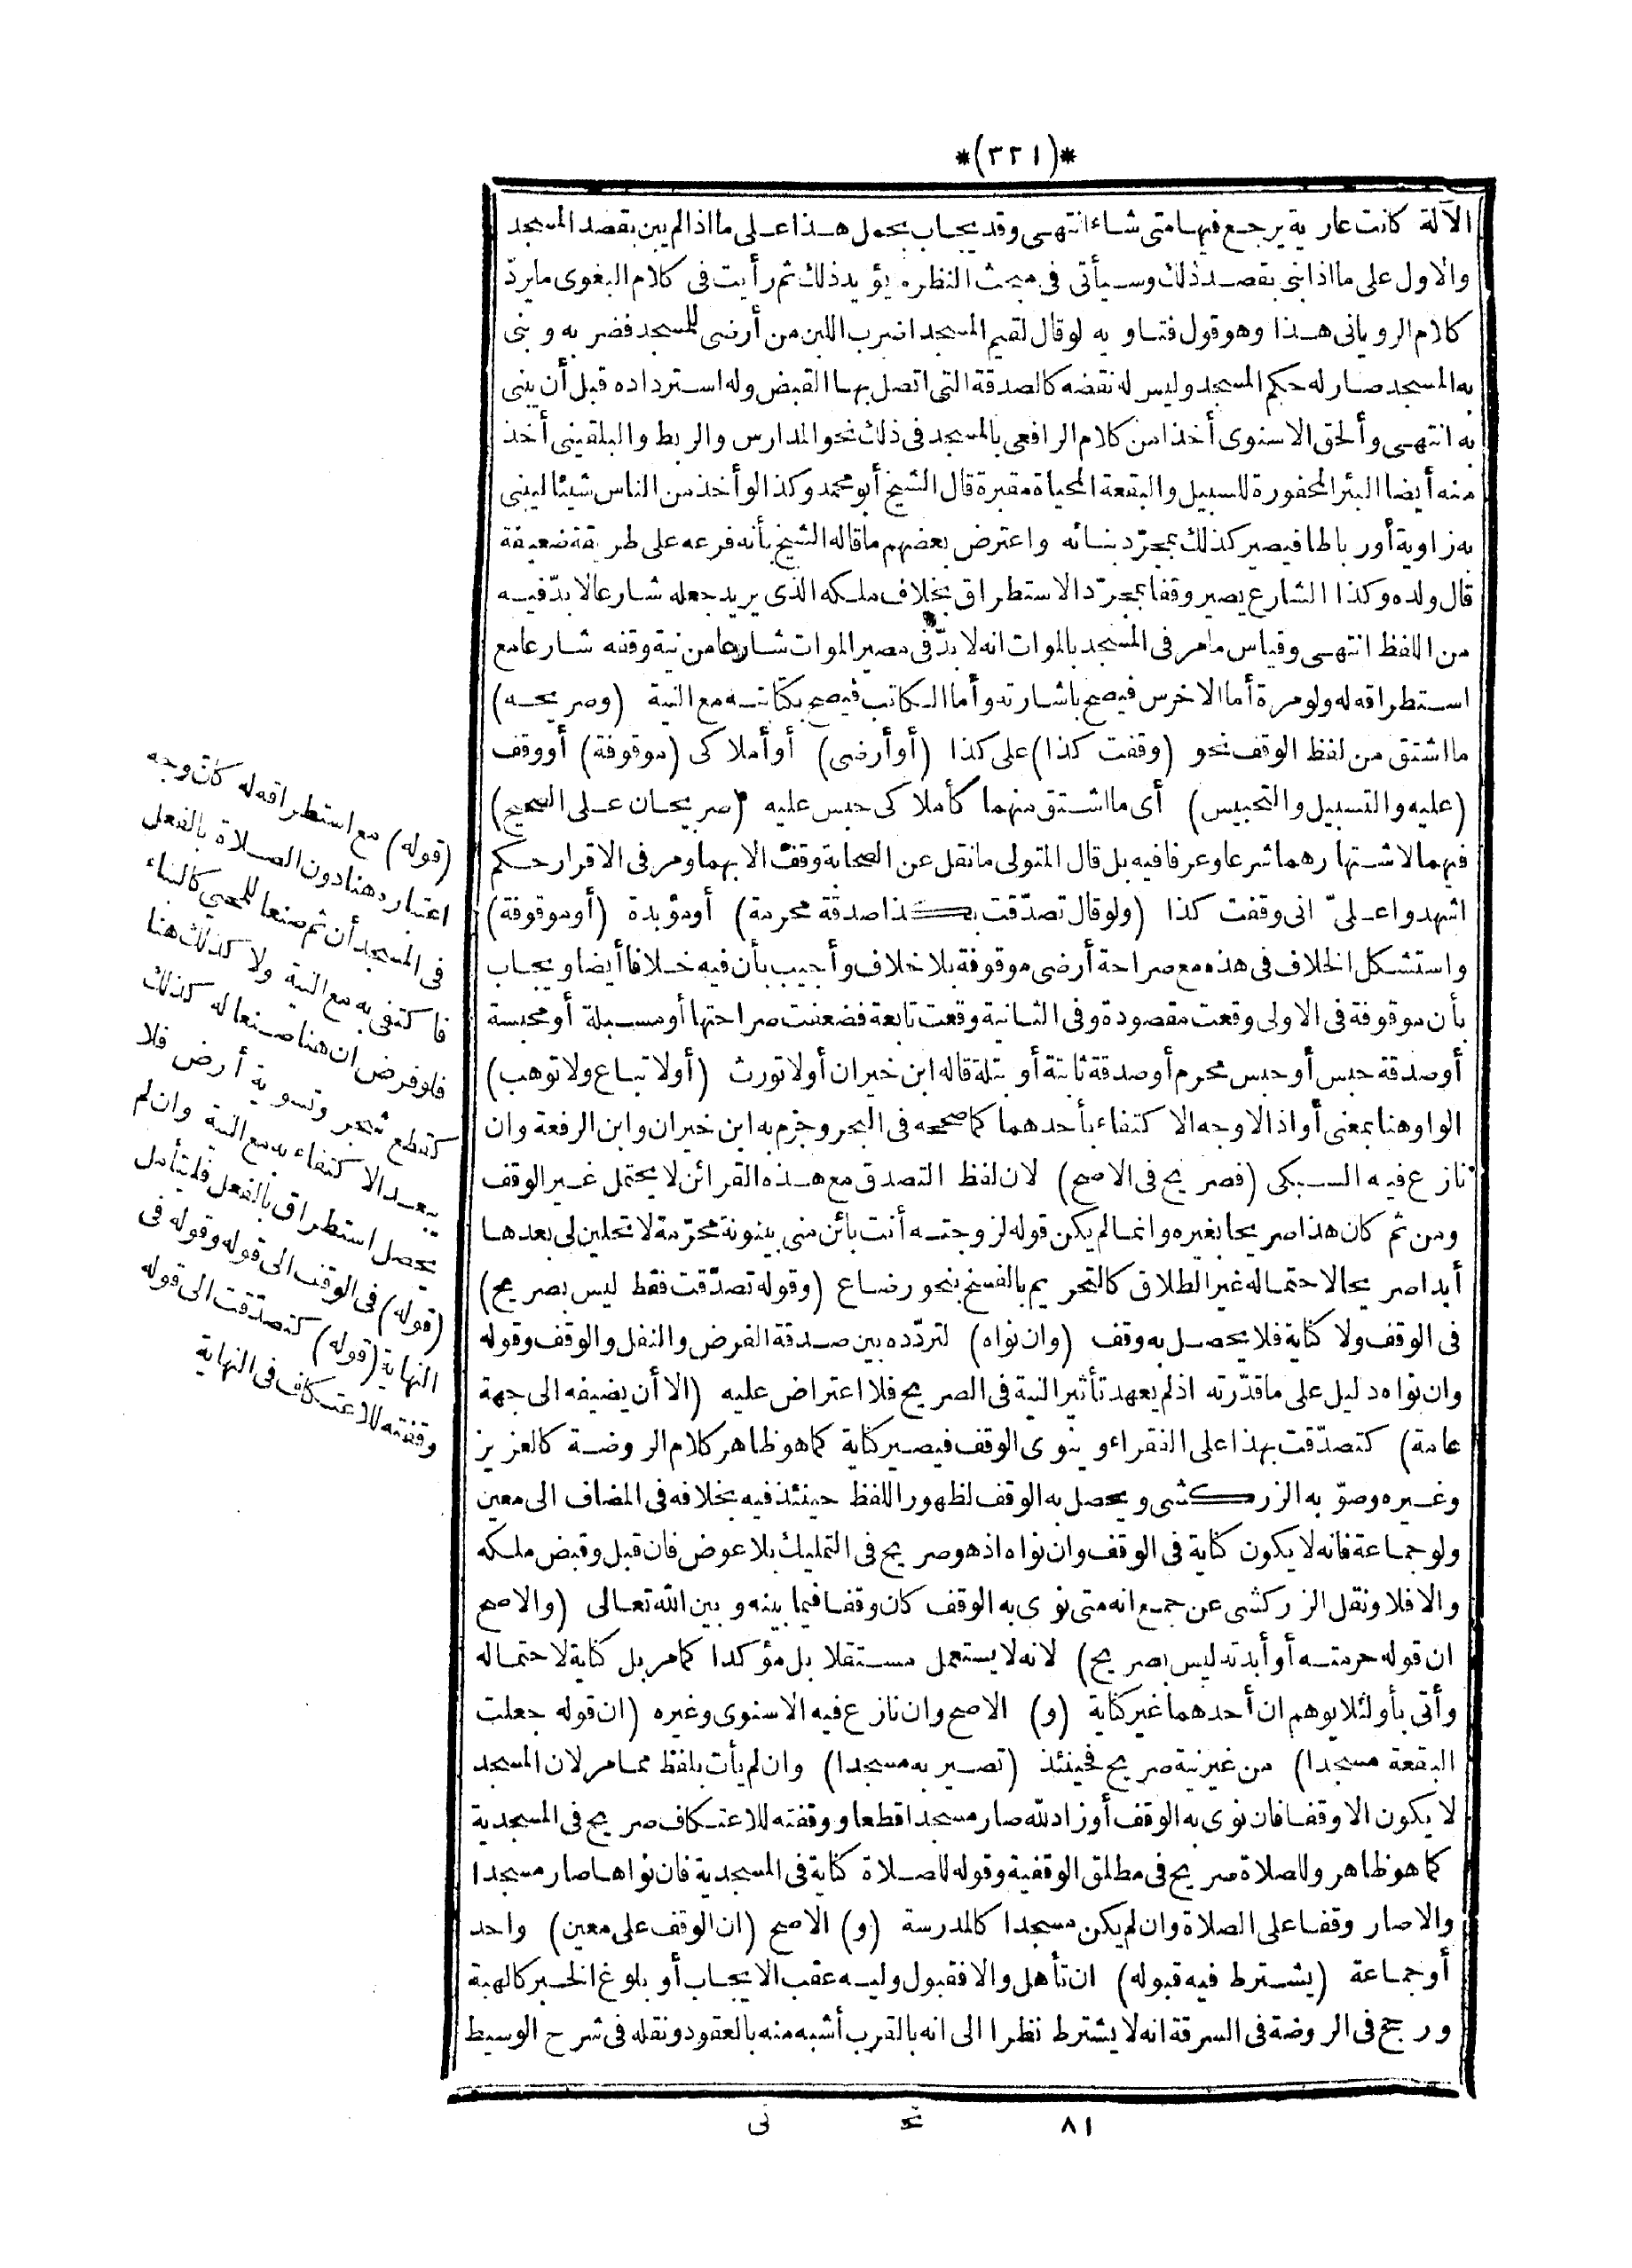 *(٣٢١)*
الآلة كانت عارية يرجع فيها متى شاء انتهى وقد يجاب بحمل هذا على ما اذا لم يبن بقصد المسجد
والاول على ما اذا بنى بقصد ذلك وسيأتى فى مبحث النظر ما يؤيد ذلك ثم رأيت فى كلام البغوى ما يردّ
كلام الرويانى هذا وهو قول فتاويه لو قال لقيم المسجد اضرب اللبن من أرضى للمسجد فضربه وبنى
به المسجد صار له حكم المسجد وليس له نقضه كالصدقة التى اتصل بها القبض وله استرداده قبل أن يبنى
به انتهى وألحق الاسنوى أخذا من كلام الرافعى بالمسجد فى ذلك نحو المدارس والربط والبلقينى أخذ
منه أيضا البئر المحفورة للسبيل والبقعة المحياة مقبرة قال الشيخ أبو محمد وكذا لو أخذ من الناس شيئا ليبنى
به زاوية أو رباطا فيصير كذلك بمجرّد بنائه واعترض بعضهم ما قاله الشيخ بأنه فرعه على طريقة ضعيفة
قال ولده وكذا الشارع يصير وقفا بمجرّد الاستطراق بخلاف ملكه الذى يريد جعله شارعا لا بدّ فيه
من اللفظ انتهى وقياس ما مر فى المسجد بالموات انه لا بدّ فى مصير الموات شارعا من نية وقفه شارعا مع
استطراقه له ولو مرة أما الاخرس فيصح باشارته وأما الكاتب فيصح بكتابته مع النية (وصريحه)
ما اشتق من لفظ الوقف نحو (وقفت كذا) على كذا (أو أرضى) أو أملاكى (موقوفة) أو وقف
(عليه والتسبيل والتحبيس) أى ما اشتق منهما كأملاكى حبس عليه (صريحان على الصحيح)
فيهما لاشتهارهما شرعا وعرفا فيه بل قال المتولى ما نقل عن الصحابة وقف الا بهما ومر فى الاقرار حكم
اشهدوا علىّ انى وقفت كذا (ولو قال تصدّقت بكذا صدقة محرمة) أو مؤبدة (أو موقوفة)
واستشكل الخلاف فى هذه مع صراحة أرضى موقوفة بلا خلاف وأجيب بأن فيه خلافا أيضا ويجاب
بأن موقوفة فى الاولى وقعت مقصودة وفى الثانية وقعت تابعة فضعفت صراحتها أو مسبلة أو محبسة
أو صدقة حبس أو حبس محرم أو صدقة ثابتة أو بتلة قاله ابن خيران أو لا تورث (أو لا تباع ولا توهب)
الواو هنا بمعنى أو اذ الاوجه الاكتفاء بأحدهما كما صححه فى البحر وجزم به ابن خيران وابن الرفعة وان
نازع فيه السبكى (فصريح فى الاصح) لان لفظ التصدق مع هذه القرائن لا يحتمل غير الوقف
ومن ثم كان هذا صريحا بغيره وانما لم يكن قوله لزوجته أنت بائن منى بينونة محرّمة لا تحلين لى بعدها
أبدا صريحا لاحتماله غير الطلاق كالتحريم بالفسخ بنحو رضاع (وقوله تصدّقت فقط ليس بصريح)
فى الوقف ولا كناية فلا يحصل به وقف (وان نواه) لتردّده بين صدقة الفرض والنفل والوقف وقوله
وان نواه دليل على ما قدّرته اذ لم يعهد تأثير النية فى الصريح فلا اعتراض عليه (الا أن يضيفه الى جهة
عامة) كتصدّقت بهذا على الفقراء وينوى الوقف فيصير كناية كما هو ظاهر كلام الروضة كالعزيز
وغيره وصوّبه الزركشى ويحصل به الوقف لظهور اللفظ حينئذ فيه بخلافه فى المضاف الى معين
ولو جماعة فانه لا يكون كناية فى الوقف وان نواه اذ هو صريح فى التمليك بلا عوض فان قبل وقبض ملكه
والا فلا ونقل الزركشى عن جمع انه متى نوى به الوقف كان وقفا فيما بينه وبين الله تعالى (والاصح
ان قوله حرمته أو أبدته ليس بصريح) لانه لا يستعمل مستقلا بل مؤكدا كما مر بل كناية لاحتماله
وأتى بأو لئلا يوهم ان أحدهما غير كناية (و) الاصح وان نازع فيه الاسنوى وغيره (ان قوله جعلت
البقعة مسجدا) من غير نية صريح فحينئذ (تصير به مسجدا) وان لم يأت بلفظ مما مر لان المسجد
لا يكون الا وقفا فان نوى به الوقف أو زاد لله صار مسجدا قطعا ووقفته للاعتكاف صريح فى المسجدية
كما هو ظاهر وللصلاة صريح فى مطلق الوقفية وقوله للصلاة كناية فى المسجدية فان نواها صار مسجدا
والا صار وقفا على الصلاة وان لم يكن مسجدا كالمدرسة (و) الاصح (ان الوقف على معين) واحد
أو جماعة (يشترط فيه قبوله) ان تأهل والا فقبول وليه عقب الايجاب أو بلوغ الخبر كالهبة
ورجح فى الروضة فى السرقة انه لا يشترط نظرا الى انه بالقرب أشبه منه بالعقود ونقله فى شرح الوسيط
(قوله) مع استطراقه له كان وجه
اعتباره هنا دون الصلاة بالفعل
فى المسجد أن ثم صنعا للمحي كالبناء
فاكتفى به مع النية ولا كذلك هنا
فلو فرض ان هنا صنعا له كذلك
كقطع شجر وتسوية أرض فلا
يبعد الاكتفاء به مع النية وان لم
يحصل استطراق بالفعل فليتأمل
(قوله) فى الوقف الى قوله وقوله فى
النهاية (قوله) كتصدّقت الى قوله
وقفته للاعتكاف فى النهاية
٨١ تح نى